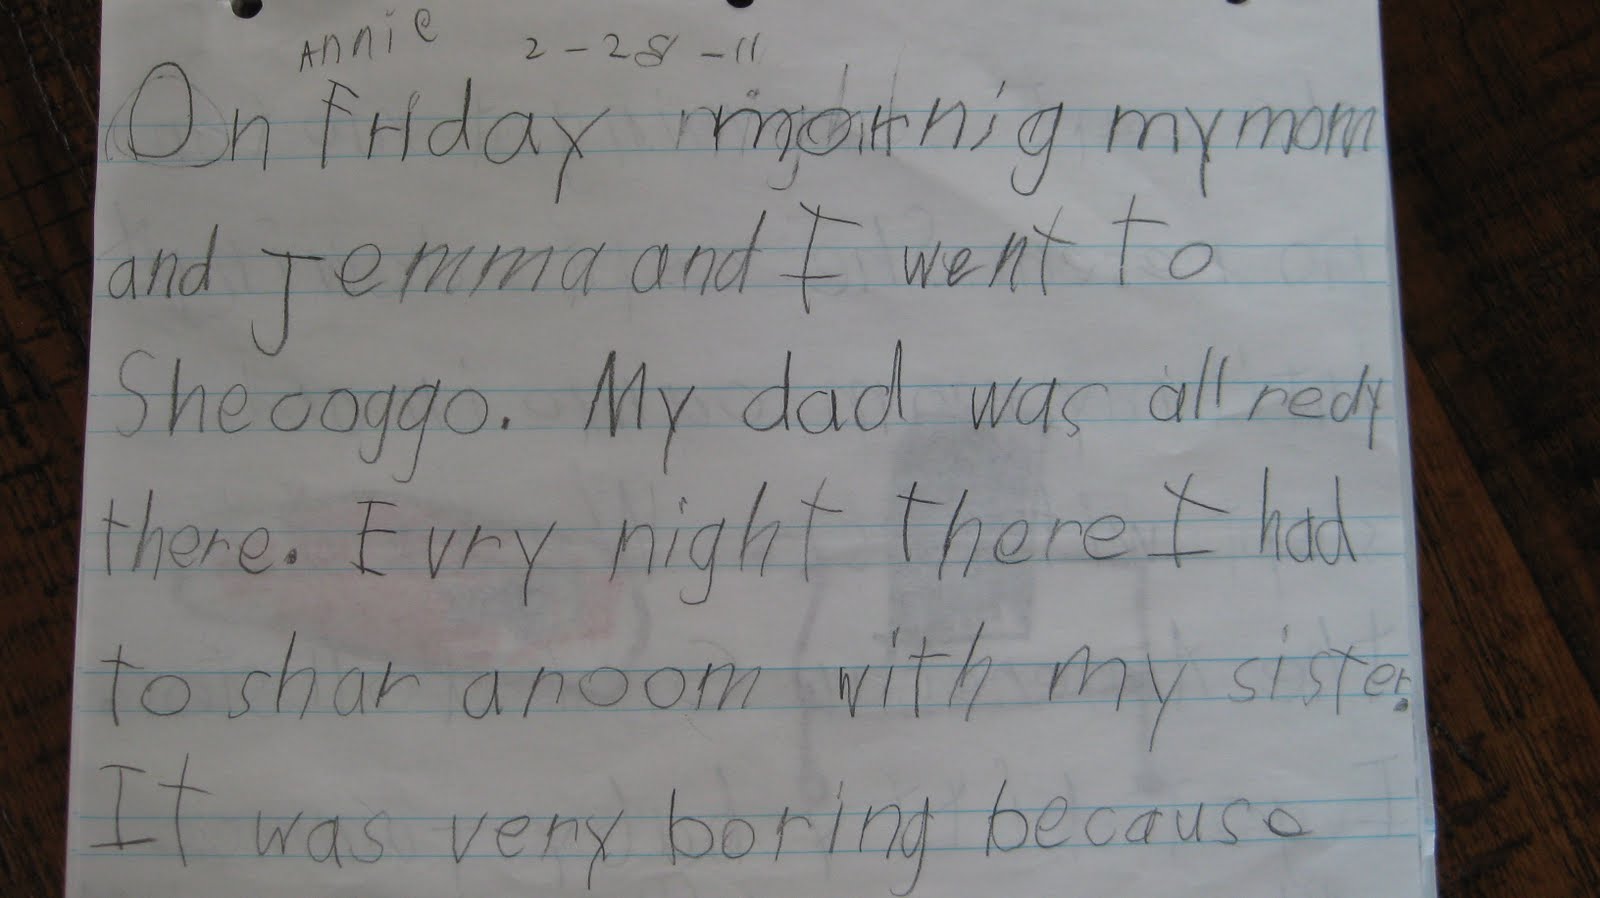 Annie 2-28-11
On Friday mornig my mom
and Jemma and I went to
Shecoggo. My dad was all redy
there. Evry night there I had
to shar a room with my sister.
It was very boring because